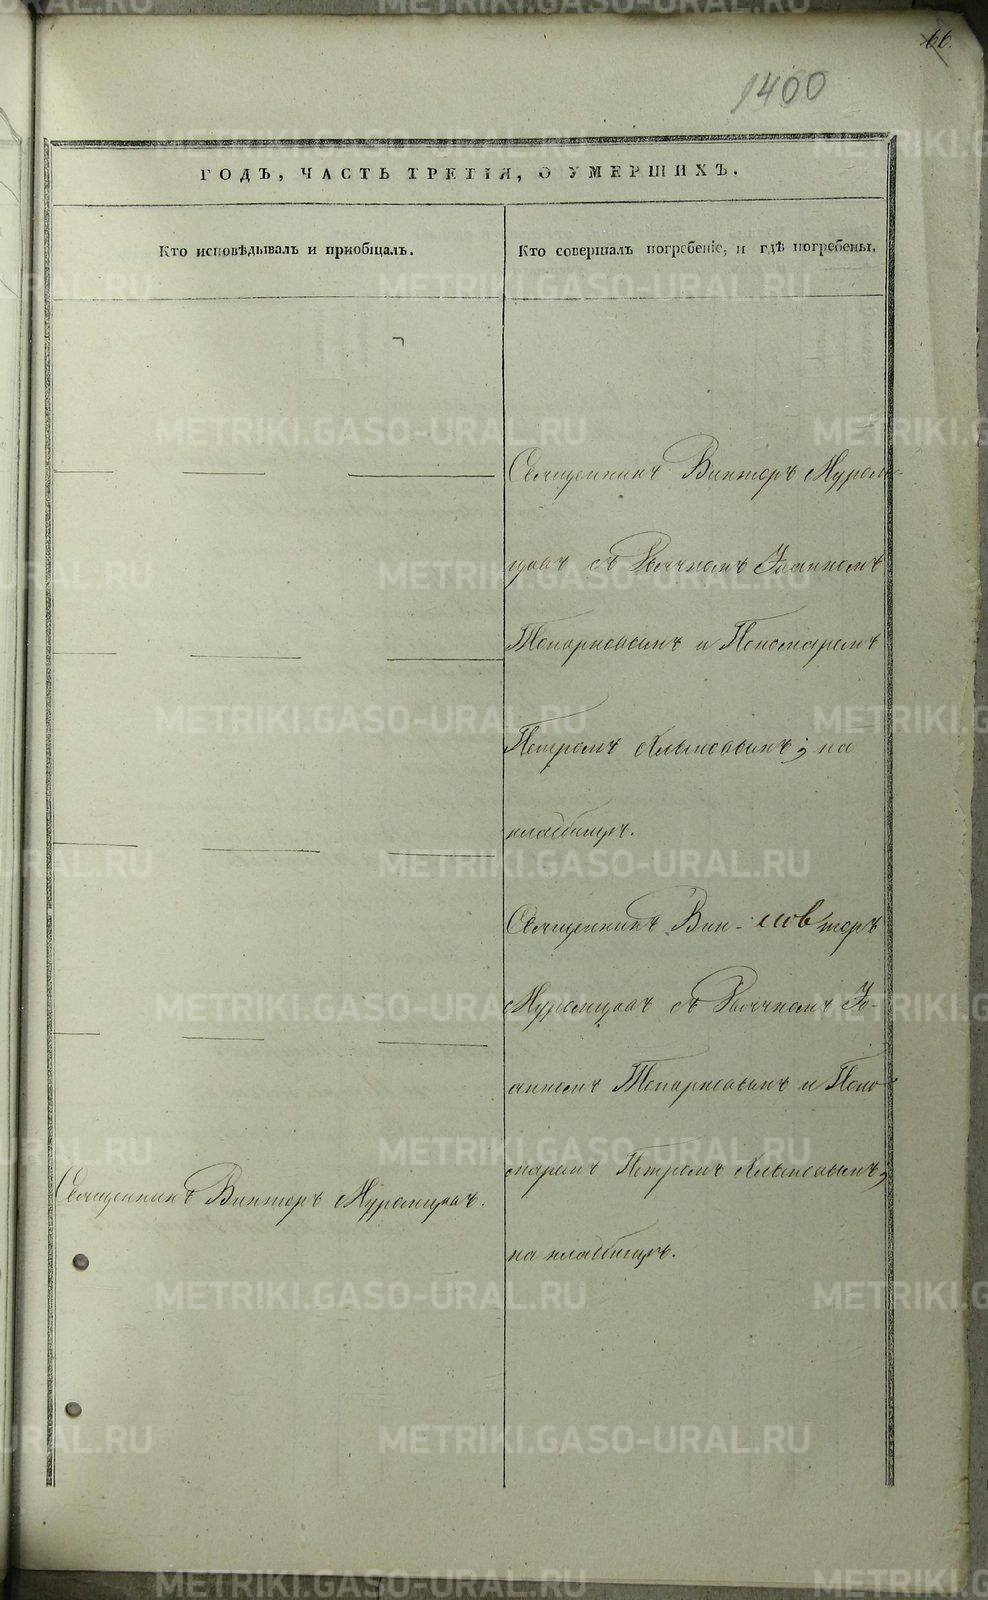 66.
1400
ГОДЪ, ЧАСТЬ ТРЕТІЯ, О УМЕРШИХЪ.
Кто исповѣдывалъ и пріобщалъ.
Кто совершалъ погребеніе, и гдѣ погребены.
Священникъ Викторъ Муром-
цовъ съ Дьячкомъ Іоанномъ
Топорковымъ и Пономаремъ
Петромъ Хлыновымъ; на
кладбищѣ.
Священникъ Вик- торъ
Муромцовъ съ Дьячкомъ Іо-
анномъ Топорковымъ и Поно-
маремъ Петромъ Хлыновымъ;
на кладбищѣ.
Священникъ Викторъ Муромцовъ.
METRIKI.GASO-URAL.RU